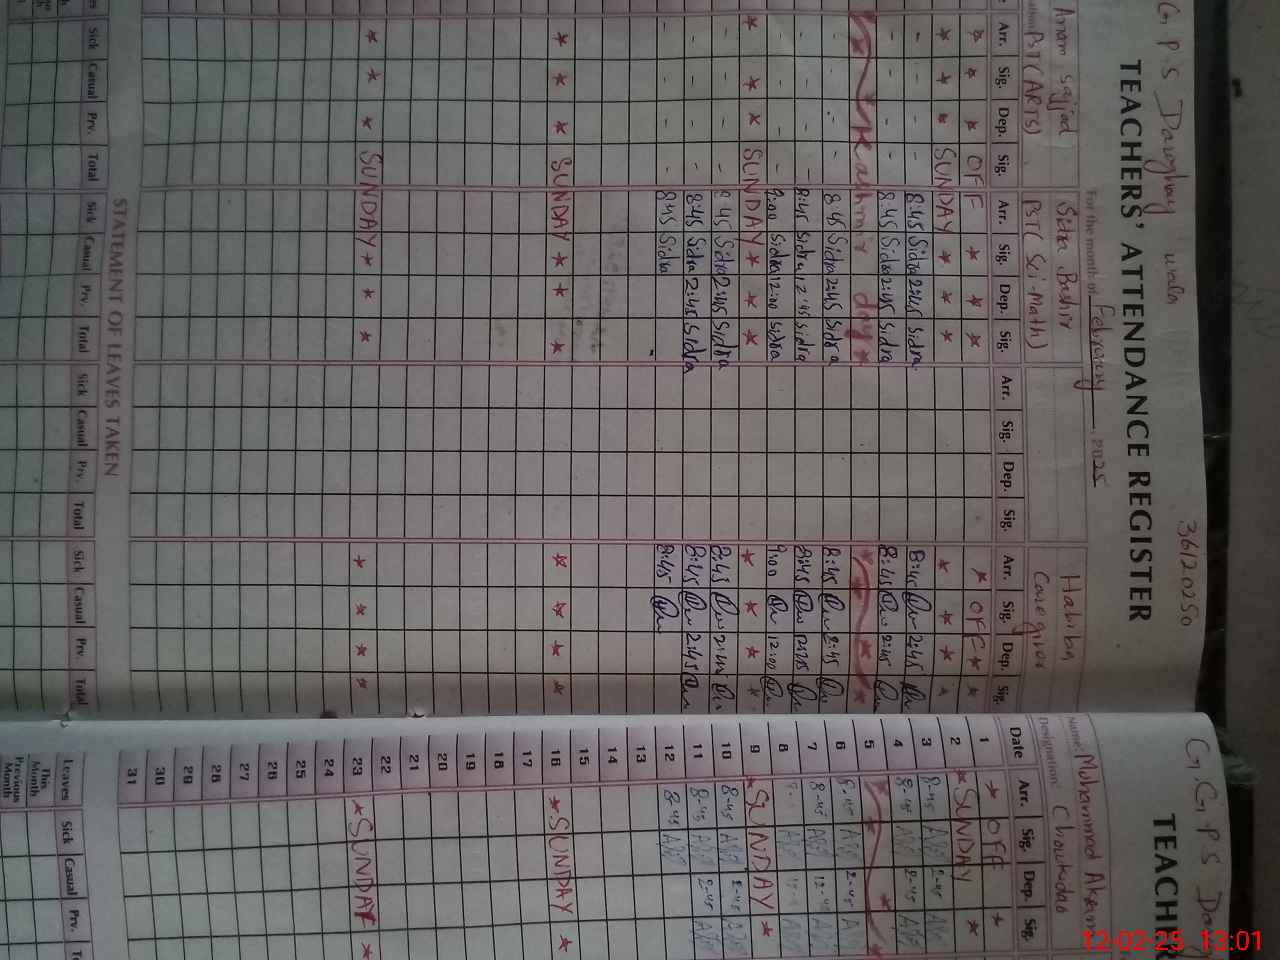 G.P.S Daroghay wala 36120250
TEACHERS' ATTENDANCE REGISTER
For the month of February, 2025
Amam Sajjad Sidra Bashir Habiba
PST(ARTS) PST(Sci-Math) Care giver
Arr. Sig. Dep. Sig. Arr. Sig. Dep. Sig. Arr. Sig. Dep. Sig. Arr. Sig. Dep. Sig.
* * * OFF * * * * OFF * *
* * * SUNDAY * * * * * * *
- - - - 8:45 Sidra 2:45 Sidra 8:45 2:45
- - - - 8:45 Sidra 2:45 Sidra 8:45 2:45
Kashmir day
- - - - 8:45 Sidra 2:45 Sidra 8:45 2:45
- - - - 8:45 Sidra 12:45 Sidra 8:45 12:45
- - - - 9:00 Sidra 12:00 Sidra 9:00 12:00
* * * SUNDAY * * * * * * *
- - - - 8:45 Sidra 2:45 Sidra 8:45 2:45
- - - - 8:45 Sidra 2:45 Sidra 8:45 2:45
- - - - 8:45 Sidra 8:45
* * * SUNDAY * * * * * * *
* * * SUNDAY * * * * * * *
STATEMENT OF LEAVES TAKEN
Sick Casual Prv. Total Sick Casual Prv. Total Sick Casual Prv. Total Sick Casual Prv. Total
G.G.P.S
TEACHER
Name: Mohammad Akram
Designation: Chowkidar
Date Arr. Sig. Dep. Sig.
1 * OFF *
2 * SUNDAY *
3 8-45 2-45
4 8-45 2-45
5
6 8-45 2-45
7 8-45 12-45
8
9 * SUNDAY *
10 8-45 2-45
11 8-45 2-45
12 8-45
13
14
15
16 * SUNDAY *
17
18
19
20
21
22
23 * SUNDAY *
24
25
26
27
28
29
30
31
Leaves Sick Casual Prv.
This Month
Previous Month
12-02-25 13:01